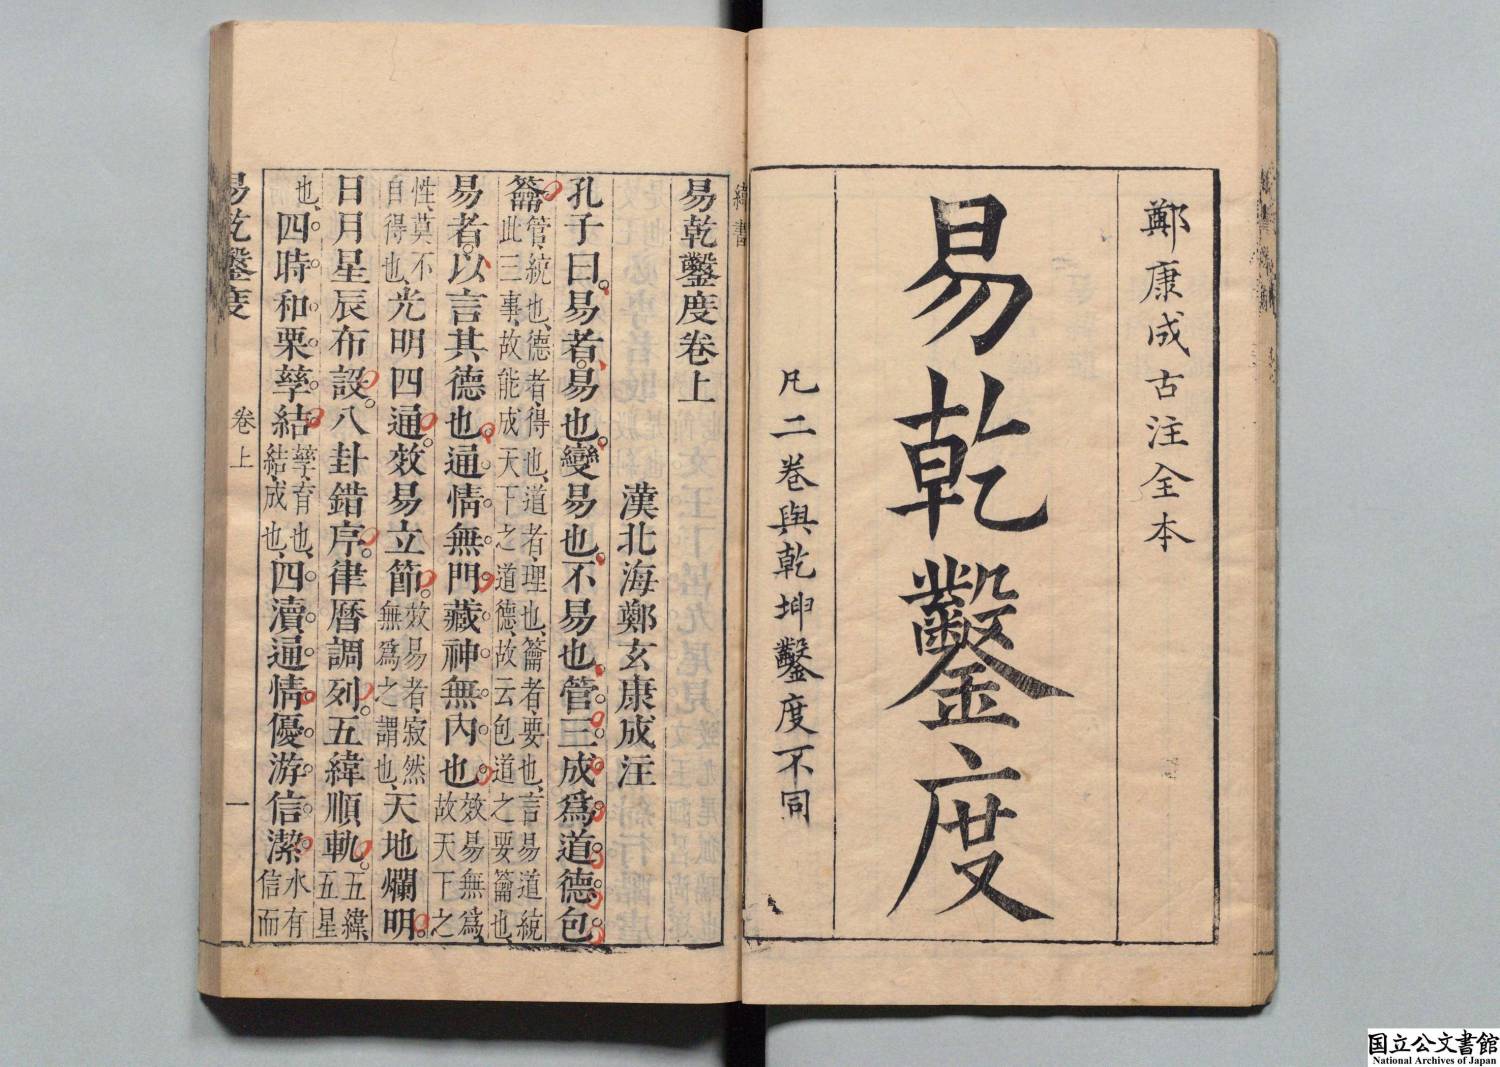 鄭康成古注全本
易乾鑿度
凡二卷與乾坤鑿度不同
緯書
易乾鑿度卷上
漢北海鄭玄康成注
孔子曰。易者。易也。變易也。不易也。管三成爲道德包
籥。管、統也、德者、得也、道者、理也、籥者、要也、言易道統
此三事、故能成天下之道德、故云包道之要籥也、
易者。以言其德也。通情無門。藏神無內。也。效易無爲、
故天下之
性、莫不
自得也、光明四通。效易立節。效易者、寂然
無爲之謂也、天地爛明。
日月星辰布設。八卦錯序。律曆調列。五緯順軌。五緯、
五星
也、四時和栗孳結。孳、育也、
結、成也、四瀆通情。優游信潔。水有
信而
易乾鑿度
卷上
一
国立公文書館
National Archives of Japan